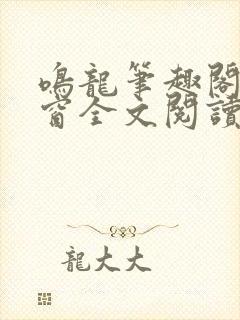 鳴龍筆趣閣
窗全文閱讀
龍大大